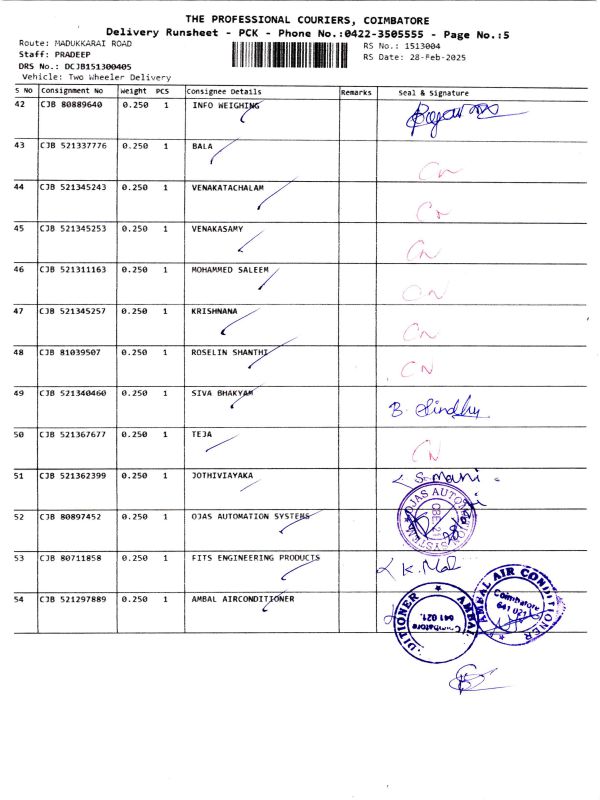 THE PROFESSIONAL COURIERS, COIMBATORE
Delivery Runsheet - PCK - Phone No.:0422-3505555 - Page No.:5
Route: MADUKKARAI ROAD
RS No.: 1513004
Staff: PRADEEP
RS Date: 28-Feb-2025
DRS No.: DCJB151300405
Vehicle: Two Wheeler Delivery
S No Consignment No Weight PCS Consignee Details Remarks Seal & Signature
42 CJB 80889640 0.250 1 INFO WEIGHING
43 CJB 521337776 0.250 1 BALA CN
44 CJB 521345243 0.250 1 VENAKATACHALAM CN
45 CJB 521345253 0.250 1 VENAKASAMY CN
46 CJB 521311163 0.250 1 MOHAMMED SALEEM CN
47 CJB 521345257 0.250 1 KRISHNANA CN
48 CJB 81039507 0.250 1 ROSELIN SHANTHI CN
49 CJB 521340460 0.250 1 SIVA BHAKYAM B. Sindhu
50 CJB 521367677 0.250 1 TEJA CN
51 CJB 521362399 0.250 1 JOTHIVIAYAKA S. Mani
52 CJB 80897452 0.250 1 OJAS AUTOMATION SYSTEMS OJAS AUTOMATION SYSTEMS
53 CJB 80711858 0.250 1 FITS ENGINEERING PRODUCTS
54 CJB 521297889 0.250 1 AMBAL AIRCONDITIONER
AMBAL AIR CONDITIONER
Coimbatore
641 021.
AMBAL DITIONER
Coimbatore
641 021.